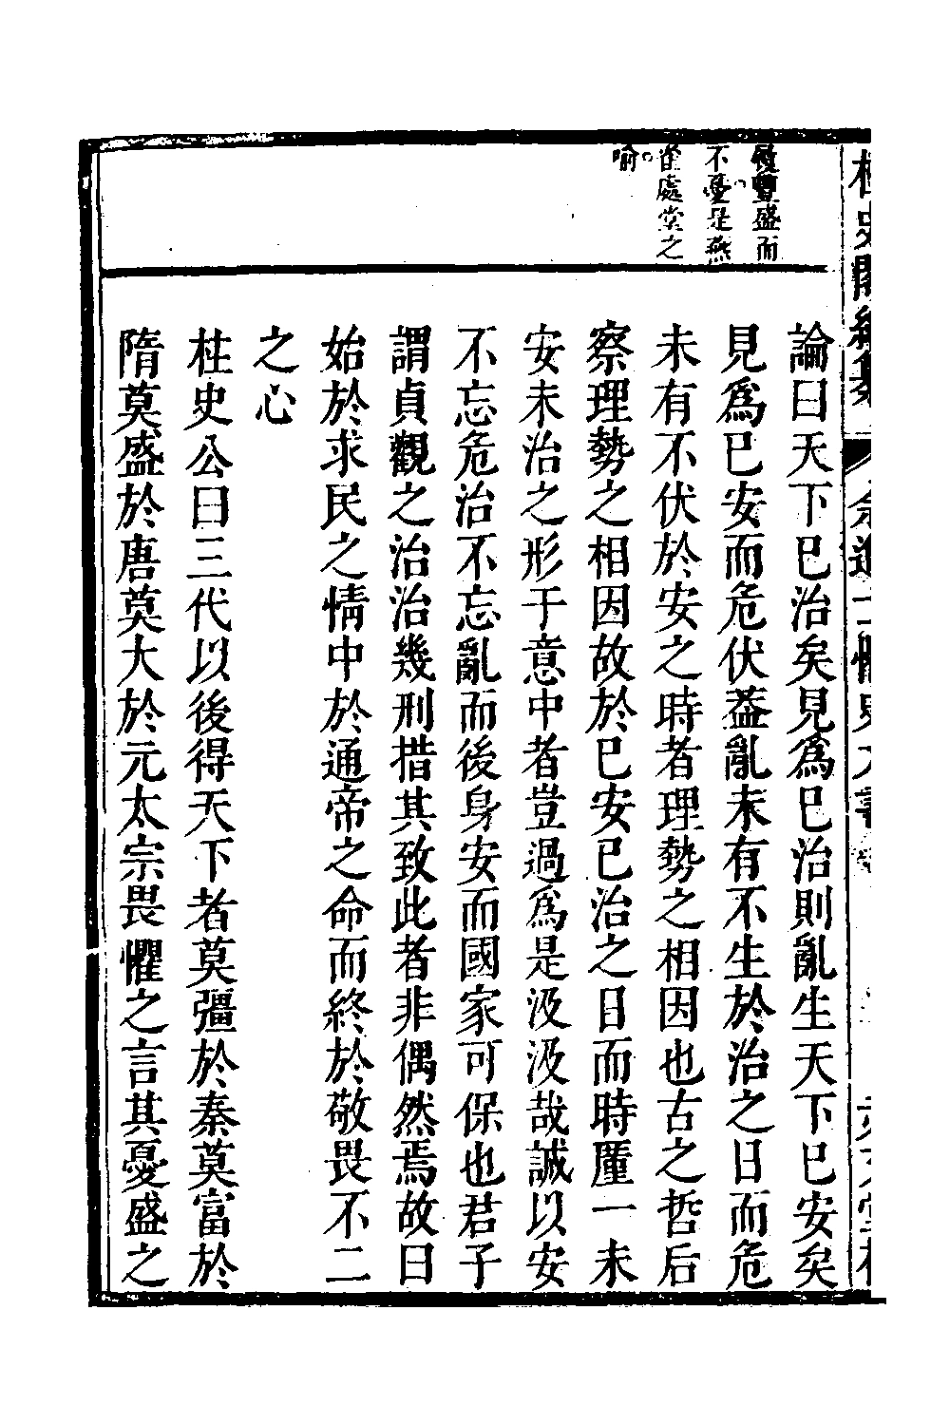 豐盛而
不憂是燕
雀處堂之
喻
論曰天下已治矣見爲已治則亂生天下已安矣
見爲已安而危伏葢亂未有不生於治之日而危
未有不伏於安之時者理勢之相因也古之哲后
察理勢之相因故於已安已治之日而時廑一未
安未治之形于意中者豈過爲是汲汲哉誠以安
不忘危治不忘亂而後身安而國家可保也君子
謂貞觀之治治幾刑措其致此者非偶然焉故曰
始於求民之情中於通帝之命而終於敬畏不二
之心
柱史公曰三代以後得天下者莫彊於秦莫富於
隋莫盛於唐莫大於元太宗畏懼之言其憂盛之